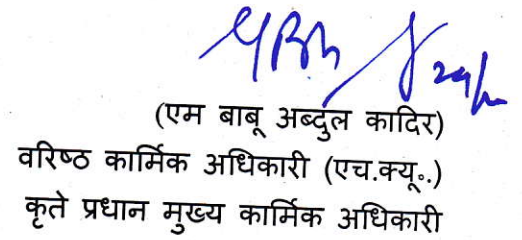 (एम बाबू अब्दुल कादिर)
वरिष्ठ कार्मिक अधिकारी (एच.क्यू॰.)
कृते प्रधान मुख्य कार्मिक अधिकारी